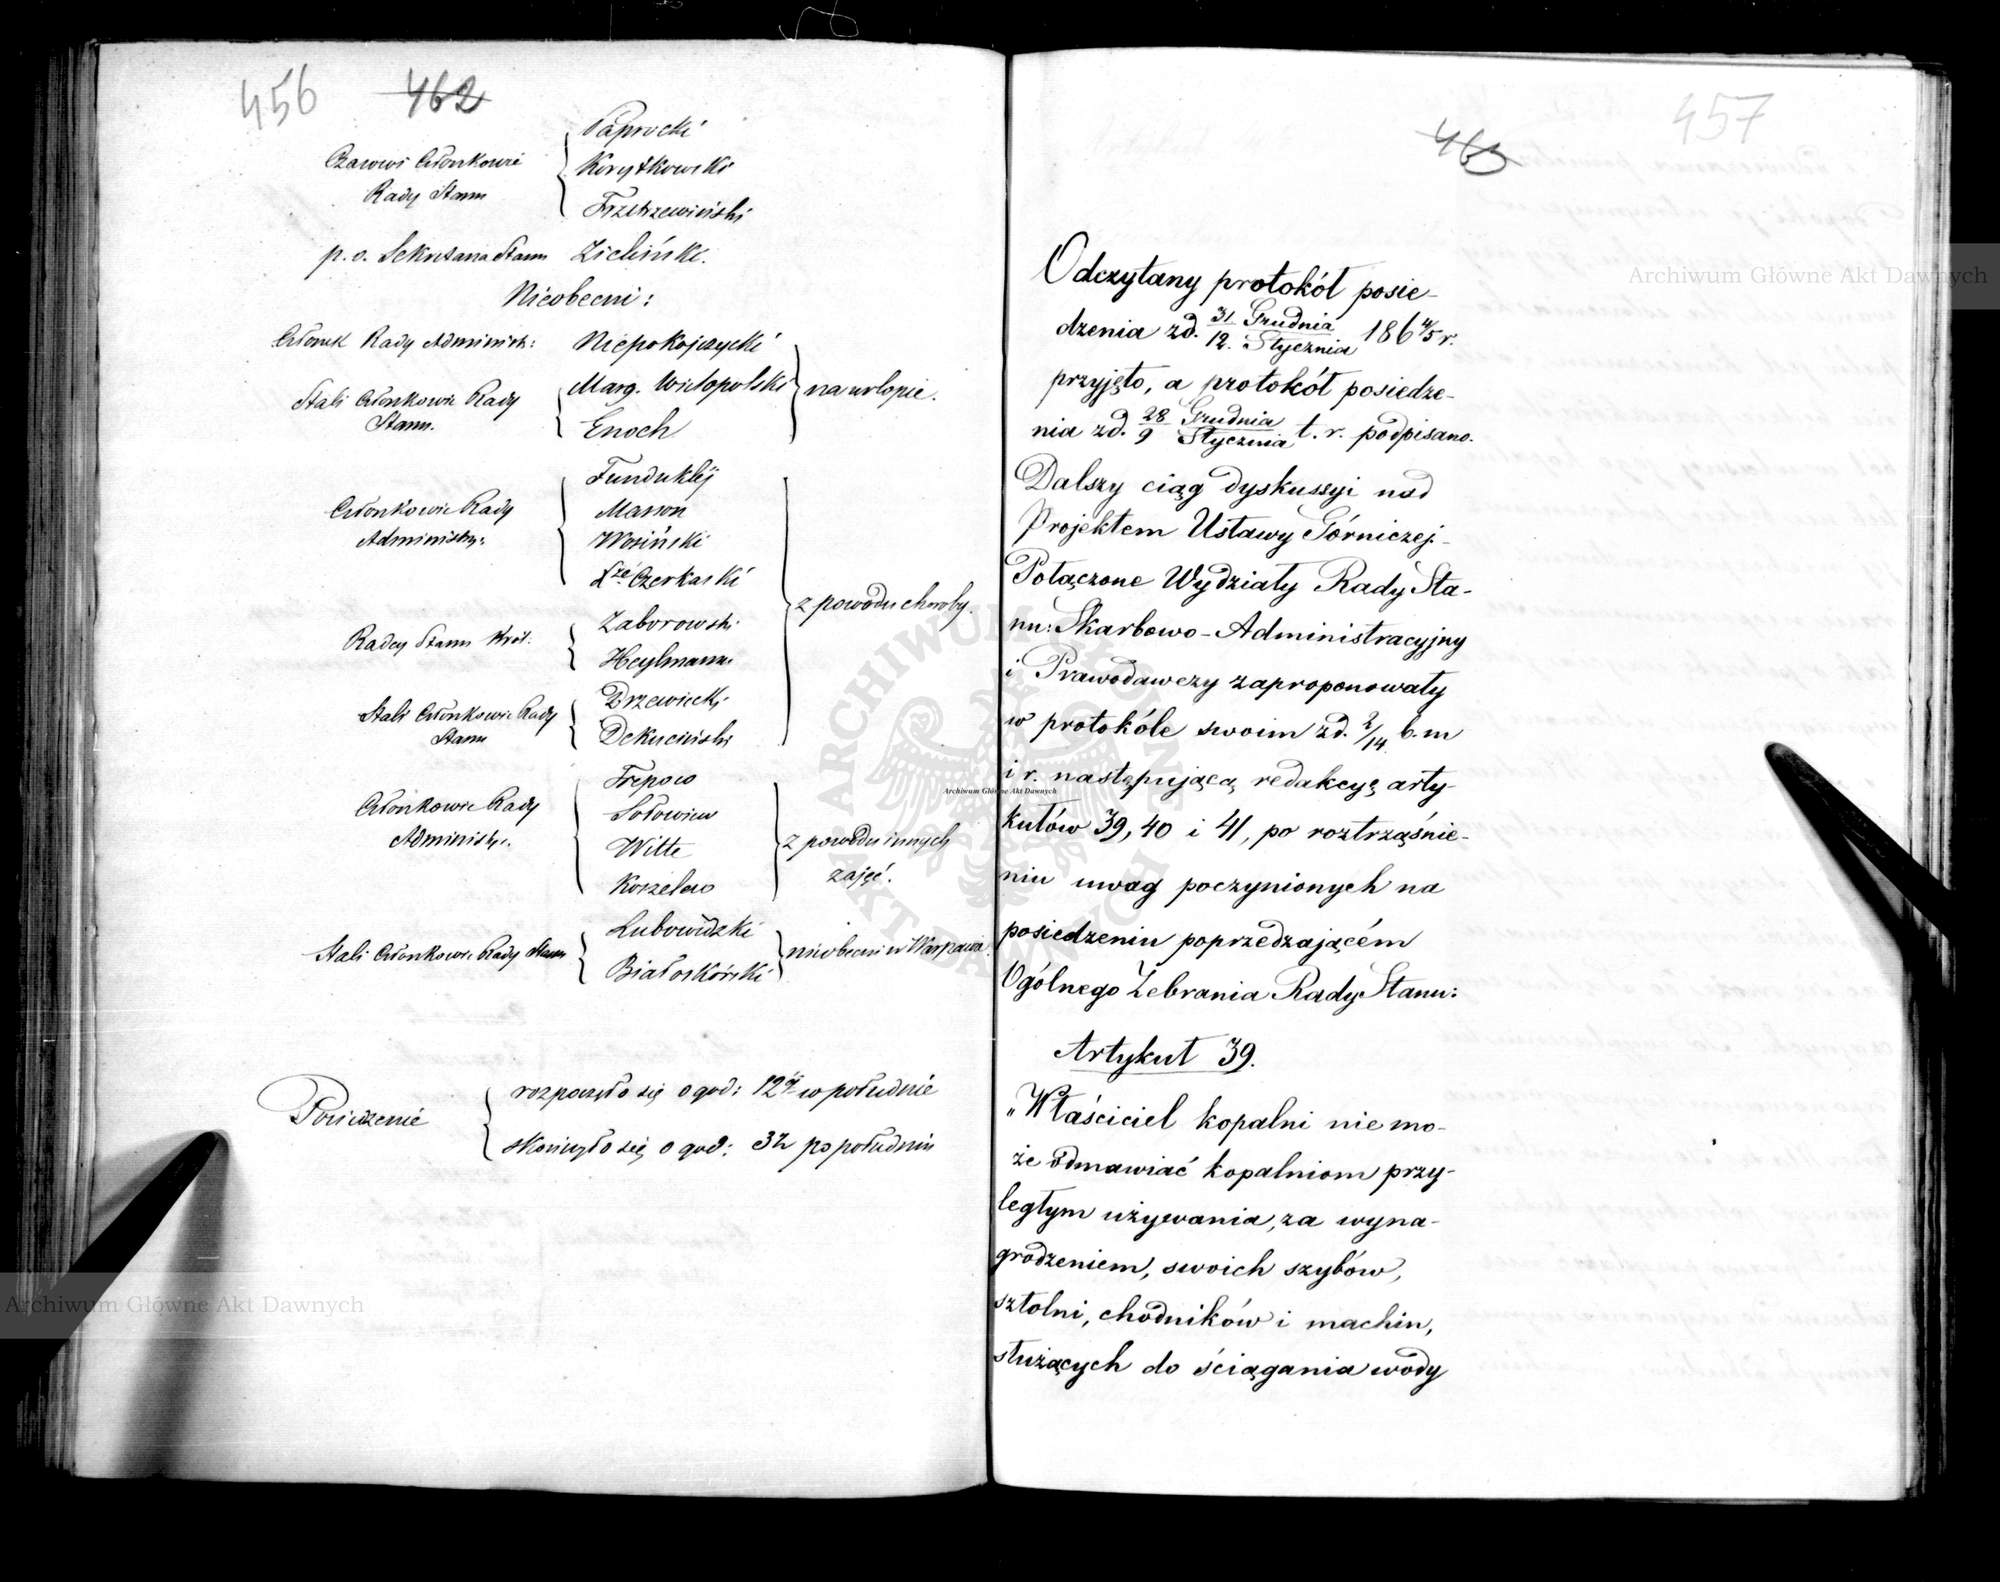 456 462
Czasowi Członkowie
Rady Stanu
Paprocki
Korytkowski
Trzetrzewiński
p. o. Sekretarza Stanu Zieliński.
Nieobecni:
Członek Rady Administr: Niepokojczycki
Stali Członkowie Rady
Stanu.
Marg. Wielopolski
Enoch
na urlopie.
Członkowie Rady
Administr:
Funduklej
Masson
Wosiński
Xże Czerkaski
Radcy Stanu Król.
Zaborowski
Heylmann
Stali Członkowie Rady
Stanu
Drzewiecki
Dekuciński
z powodu choroby.
Członkowie Rady
Administr.
Trepow
Sołowiew
Witte
Koszelew
z powodu innych
zajęć.
Stali Członkowie Rady Stanu
Lubowidzki
Białoskórski
nieobecni w Warszawie.
Posiedzenie
rozpoczęło się o god: 12éj w południe
skończyło się o god: 3½ po południu
457
463
Odczytany protokół posie-
dzenia zd. 31/12. Grudnia/Stycznia 1864/5 r.
przyjęto, a protokół posiedze-
nia zd. 28/9 Grudnia/Stycznia t. r. podpisano.
Dalszy ciąg dyskussyi nad
Projektem Ustawy Górniczej.
Połączone Wydziały Rady Sta-
nu: Skarbowo-Administracyjny
i Prawodawczy zaproponowały
w protokóle swoim zd. 2/14 b. m
i r. następującą redakcyę arty-
kułów 39, 40 i 41, po roztrząśnie-
niu uwag poczynionych na
posiedzeniu poprzedzającém
Ogólnego Zebrania Rady Stanu:
Artykuł 39.
„Właściciel kopalni nie mo-
że odmawiać kopalniom przy-
ległym używania, za wyna-
grodzeniem, swoich szybów,
sztolni, chodników i machin,
służących do ściągania wody
Archiwum Główne Akt Dawnych
Archiwum Główne Akt Dawnych
Archiwum Główne Akt Dawnych